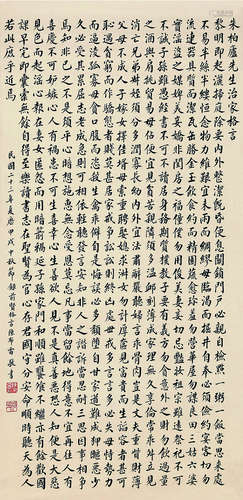 朱柏廬先生治家格言
黎明即起灑掃庭除要內外整潔既昏便息關鎖門戶必親自檢點一粥一飯當思來處
不易半絲半縷恆念物力維艱宜未雨而綢繆毋臨渴而掘井自奉必須儉約宴客切勿
流連器具質而潔瓦缶勝金玉飲食約而精園蔬愈珍饈勿營華屋勿謀良田三姑六婆
實淫盜之媒婢美妾嬌非閨房之福僮僕勿用俊美妻妾切忌艷妝祖宗雖遠祭祀不可
不誠子孫雖愚經書不可不讀居身務期質樸教子要有義方勿貪意外之財勿飲過量
之酒與肩挑貿易毋佔便宜見貧苦親鄰須多溫卹刻薄成家理無久享倫常乖舛立見
消亡兄弟叔姪須分多潤寡長幼內外宜法肅辭嚴聽婦言乖骨肉豈是丈夫重資財薄
父母不成人子嫁女擇佳婿毋索重聘娶媳求淑女勿計厚奩見富貴而生諂容者最可
恥遇貧窮而作驕態者賤莫甚居家戒爭訟訟則終凶處世戒多言言多必失毋恃勢力
而凌逼孤寡毋貪口腹而恣殺生禽乖僻自是悔誤必多頹惰自甘家道難成狎暱惡少
久必受其累屈志老成急則可相依輕聽發言安知非人之譖訴當忍耐三思因事相爭
焉知非己之不是須平心暗想施惠無念受恩莫忘凡事當留餘地得意不宜再往人有
喜慶不可生妒忌心人有禍患不可生喜幸心善欲人見不是真善惡恐人知便是大惡
見色而起淫心報在妻女匿怨而用暗箭禍延子孫家門和順雖饔飧不繼亦有餘歡國
課早完即囊橐無餘自得至樂讀書志在聖賢為官心存君國守分安命順時聽天為人
若此庶乎近焉
民國二十三年夏曆甲戌中秋節錄前賢格言陳布雷敬書